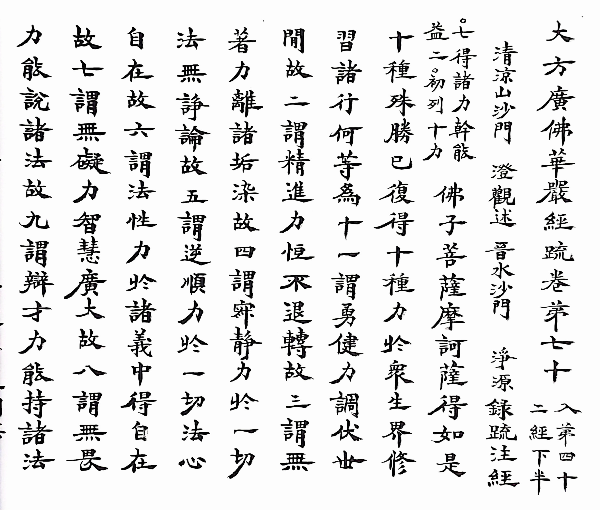 大方廣佛華嚴經䟽卷苐七十 入苐四十二經下半
清涼山沙門 澄觀述 晉水沙門 淨源錄䟽注經
七得諸力幹能益二初列十力 佛子菩薩摩訶薩得如是
十種殊勝已復得十種力於衆生界修
習諸行何等為十一謂勇健力調伏世
間故二謂精進力恒不退轉故三謂無
著力離諸垢染故四謂寂靜力於一切
法無諍論故五謂逆順力於一切法心
自在故六謂法性力於諸義中得自在
故七謂無礙力智慧廣大故八謂無畏
力能說諸法故九謂辯才力能持諸法